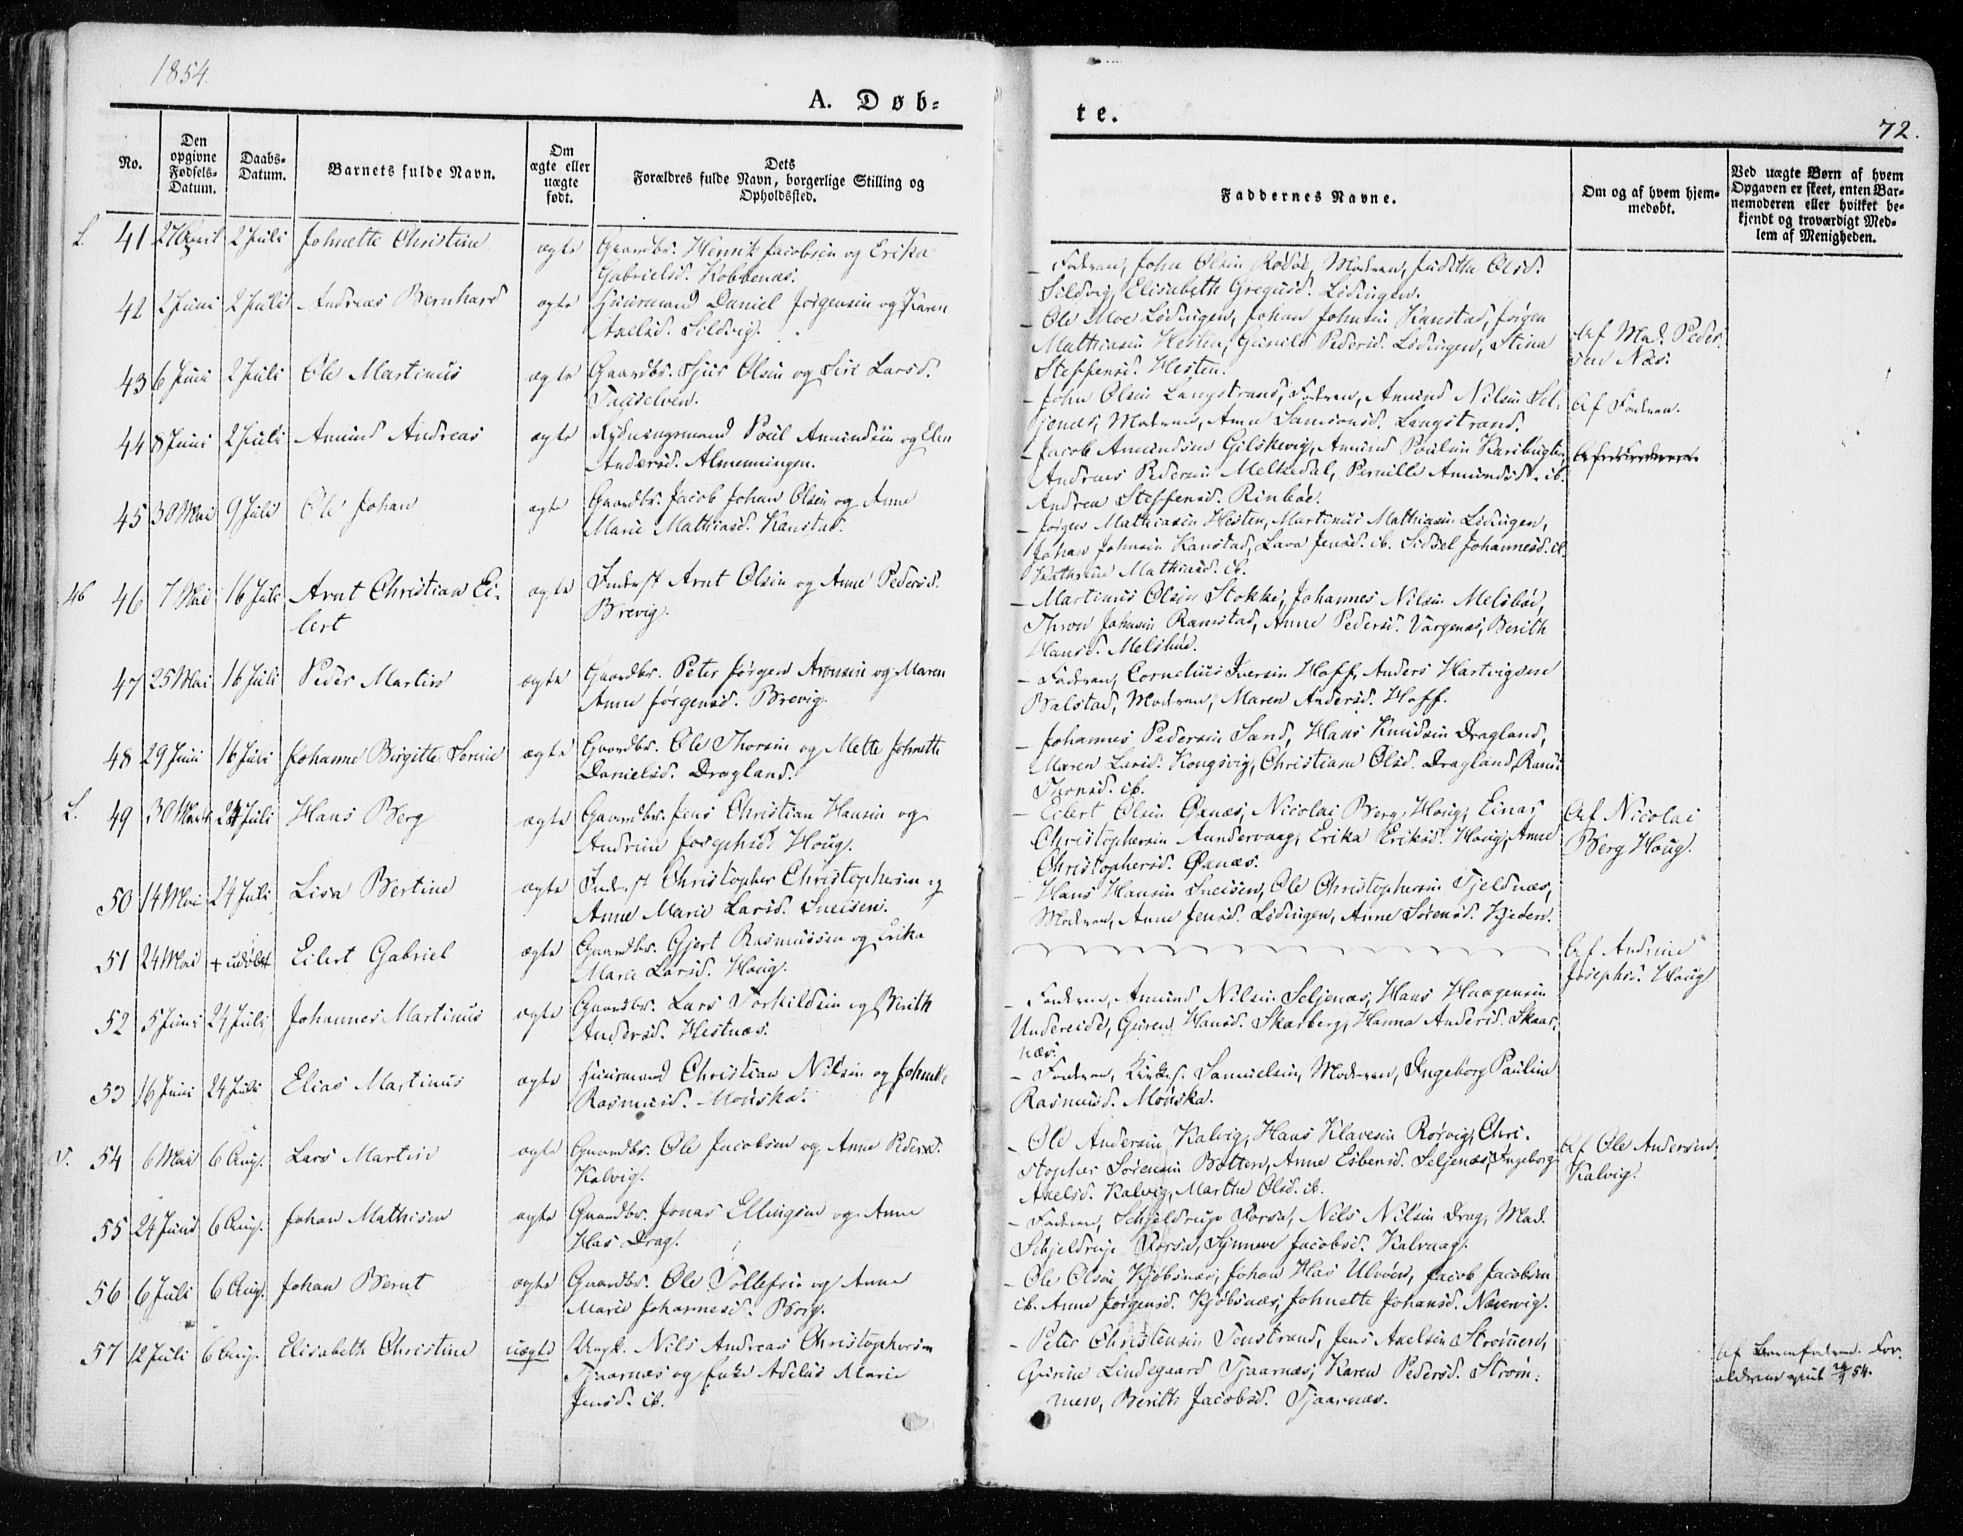 1854.
A. Døb=
te.
72.
No.
Den opgivne Fødsels-Datum.
Daabs-Datum.
Barnets fulde Navn.
Om ægte eller uægte født.
Dets Forældres fulde Navn, borgerlige Stilling og Opholdssted.
Faddernes Navne.
Om og af hvem hjem-medøbt.
Ved uægte Børn af hvem Opgaven er skeet, enten Bar-nemoderen eller hvilket be-kjendt og troværdigt Med-lem af Menigheden.
L. 41 27 April 2 Juli Johnette Christine ægte Gaardbr. Henrik Jacobsen og Erika
Gabrielsd. Kobbenæs.
42 2 Juni 2 Juli Andreas Bernhard ægte Huusmand Daniel Jørgensen og Karen
Axelsd. Sildvig.
43 6 Juni 2 Juli Ole Martinus ægte Gaardbr. Sjur Olsen og Siri Larsd.
44 8 Juni 2 Juli Amund Andreas ægte Rydningsmand Poul Amundsen og Elen
Andersd. Almenningen.
45 30 Mai 9 Juli Ole Johan ægte Gaardbr. Jacob Johan Olsen og Anne
Marie Mathiasd. Kanstad.
46 46 7 Mai 16 Juli Arnt Christian Ei- ægte Inderst Arnt Olsen og Anne Pedersd.
lert Brevig.
47 25 Mai 16 Juli Peder Martin ægte Gaardbr. Peter Jørgen Aronsen og Maren
Anne Jørgensd. Brevig.
48 29 Juni 16 Juli Johanne Birgitte Sorine ægte Gaardbr. Ole Thorsen og Mette Johnette
Danielsd. Dragland.
L. 49 30 Marts 24 Juli Hans Berg ægte Gaardbr. Jens Christian Hansen og
Andrine Josephsd. Houg.
50 14 Mai 24 Juli Lisa Bertine ægte Inderst Christopher Christophersen og
Anne Marie Larsd. Sneisen.
51 24 Mai + udøbt Eilert Gabriel ægte Gaardbr. Gjert Rasmussen og Erika
Marie Larsd. Houg.
52 5 Juni 24 Juli Johannes Martinus ægte Gaardbr. Lars Torkildsen og Berith
Andersd. Hestnæs.
53 16 Juni 24 Juli Elias Martinus ægte Huusmand Christian Nilsen og Johnette
Rasmusd. Mouska.
54 6 Mai 6 Aug. Lars Martin ægte Gaardbr. Ole Jacobsen og Anne Pedersd.
Kalvig.
55 24 Juni 6 Aug. Johan Mathisen ægte Gaardbr. Jonas Ellingsen og Anne
Has Drag.
56 6 Juli 6 Aug. Johan Bernt ægte Gaardbr. Ole Tollefsen og Anne
Marie Johannesd. Borg.
57 12 Juli 6 Aug. Elisabeth Christine uægte Ungk. Nils Andreas Christophersen
Tjaarnæs og Enke Adelus Marie
Jensd. ib.
- Faderen, John Olsen Rødøe, Moderen, Judithe Olsd.
Sildvig, Elisabeth Gregusd. Lødingen.
- Ole Moe Lødingen, Johan Johnsen Kanstad, Jørgen
Mathiasen Hesten, Gunild Pedersd. Lødingen, Stina
Steffensd. Hesten.
- John Olsen Langstrand, Faderen, Amund Nilsen Sel-
jenæs, Moderen, Anne Samsonsd. Langstrand.
- Jacob Amundsen Gilskevig, Amund Poulsen Karibugten,
Andreas Pedersen Melkedal, Pernille Amundsd. ib.
Andrea Steffensd. Rinbøe.
- Jørgen Mathiasen Hesten, Martinus Mathiasen Lødingen,
Johan Johnsen Kanstad, Lava Jensd. ib. Sidsel Johannesd. ib.
Kathrine Mathiasd. ib.
- Martinus Olsen Stokke, Johannes Nilsen Melsbøe,
Thron Johnsen Ramstad, Anne Pedersd. Vargenæs, Berith
Hansd. Melsbøe.
- Faderen, Cornelius Iversen Hoff, Anders Hartvigsen
Balstad, Moderen, Maren Andersd. Hoff.
- Johannes Pedersen Sand, Hans Knudsen Dragland,
Maren Larsd. Kongsvig, Christiane Olsd. Dragland,
Thorsd. ib.
- Eilert Olsen Øxnæs, Nicolai Berg, Houg, Einar
Christophersen Aundervaag, Erika Eriksd. Houg, Anne
Christophersd. Øxnæs.
- Hans Hansen Sneisen, Ole Christophersen Tjeldnæs,
Moderen, Anne Jensd. Lødingen, Anne Sørensd.
- Faderen, Amund Nilsen Seljenæs, Hans Haagensen
Undereide, Guren Hansd. Skarberg, Hanna Andersd. Skaar-
næs.
- Faderen, Samuelsen, Moderen, Ingeborg Pauline
Rasmusd. Mouska.
- Ole Andersen Kalvig, Hans Klavesen Rørvig, Chri-
stopher Sørensen Botten, Anne Esbensd. Seljenæs, Ingeborg
Axelsd. Kalvig, Marthe Olsd. ib.
- Faderen, Schjeldrup Forsa, Nils Nilsen Drag, Mad.
Schjeldrup Forsa, Synneve Jacobsd. Kalvaag.
- Ole Olsen Kjøbsnæs, Johan Has Ulvøen, Jacob Jacobsen
ib. Anne Jørgensd. Kjøbsnæs, Johnette Johansd. Nævervig.
- Peter Christensen Tenstrand, Jens Axelsen Strømmen,
Gurine Lindegaard Tjaarnæs, Karen Pedersd. Strøm-
men, Berith Jacobsd. Tjaarnæs.
Af Mad. Peder-
sen Næs.
Af Faderen.
Af Nicolai
Berg Houg.
Af Andrine
Josephsd. Houg
Af Ole Andersen
Kalvig.
Af Barnefaderen. For-
ældrene 54.